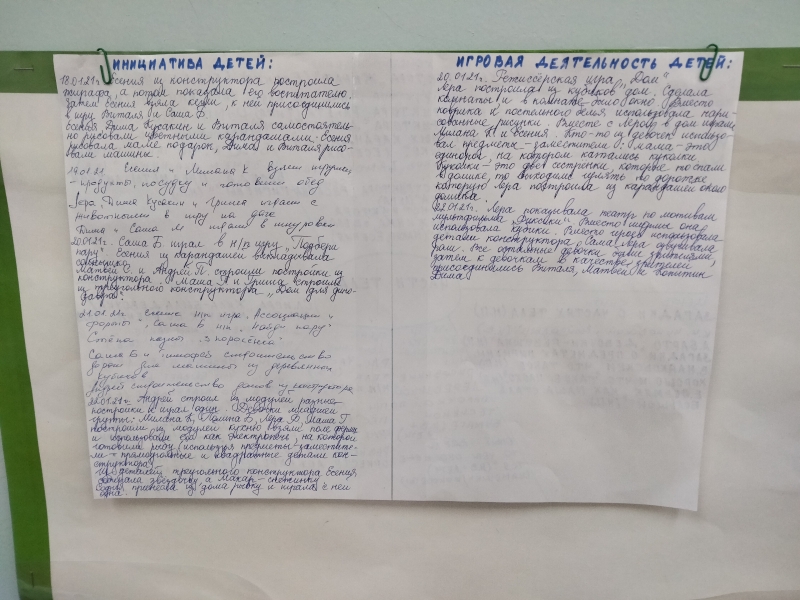 ИНИЦИАТИВА ДЕТЕЙ:
18.01.21г. Есения из конструктора построила
жирафа, а потом показала его воспитателю.
Затем Есения взяла кегли, к ней присоединились
в игру Виталя и Саша Б.
Есения, Дима Кусакин и Виталя самостоятель-
но рисовали цветными карандашами. Есения
рисовала маме подарок, Дима и Виталя рисо-
вали машины.
19.01.21 Есения и Милана К взяли игрушки
- продукты, посуду и готовили обед
Лера, Дима Кусакин и Ариша играют с
животными в игру на даче
Дима и Саша М играют в шнуровки
20.01.21г. Саша Б. играл в н/п игру "Подбери
пару". Есения из карандашей выкладывала
солнышко.
Матвей С. и Андрей П. строили постройки из
конструктора. Маша А и Ариша строили
из треугольного конструктора "Дом для дино-
завра".
21.01.21г. Есения н/п игра "Ассоциации и
формы", Саша Б н/п "Найди пару"
Стёпа казит "3 поросёнка"
Саша Б и Тимофей строительство
дороги для машинки из деревянных
кубиков
Андрей строительство домов из конструктора
22.01.21г. Андрей строил из модулей разные
постройки и играл один. Девочки младшей
группы: Милана К, Полина Б, Лера Ф, Маша Г.
построили из модулей кухню взяли поле
и использовали его как электропечь, на которой
готовили еду, используя предметы-заместите-
ли - прямоугольные и квадратные детали кон-
структора.
Из деталей треугольного конструктора Есения
собирала звёздочку, а Макар - снежинку
София принесла из дома рыбку и играла с ней
одна.
ИГРОВАЯ ДЕЯТЕЛЬНОСТЬ ДЕТЕЙ:
20.01.21г. Режиссёрская игра "Дом"
Лера построила из кубиков дом. Сделала
комнаты и в комнате было окно. Вместо
коврика и постельного белья, использовала нари-
сованные рисунки. Вместе с Лерой в дом играли
Милана К. и Есения. Кто-то из девочек использо-
вал предметы - заместители: мама - это
единорог, на котором катались куколки.
Куколки - это две сестрички, которые то спали
в домике, то выходили гулять по дорожке
которую Лера построила из карандашей около
домика.
22.01.21г. Лера показывала театр по мотивам
мультфильма "Фиксики". Вместо ширмы она
использовала кубики. Вместо героев использовала
детали конструктора. Сама Лера озвучивала
роли. Все остальные девочки были зрителями,
затем к девочкам в качестве зрителей
присоединились Виталя, Матвей К, Копитин
Дима